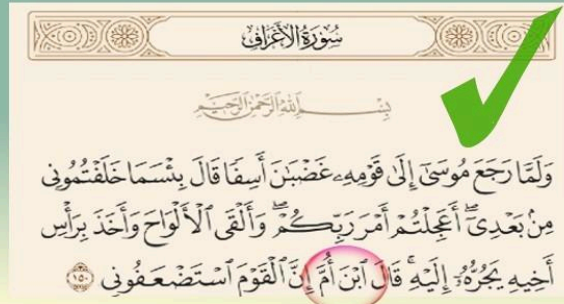 سُورَةُ الأَعْرَافِ
بِسْمِ ٱللَّهِ ٱلرَّحْمَٰنِ ٱلرَّحِيمِ
وَلَمَّا رَجَعَ مُوسَىٰٓ إِلَىٰ قَوْمِهِۦ غَضْبَٰنَ أَسِفًا قَالَ بِئْسَمَا خَلَفْتُمُونِى
مِنۢ بَعْدِىٓۖ أَعَجِلْتُمْ أَمْرَ رَبِّكُمْۖ وَأَلْقَى ٱلْأَلْوَاحَ وَأَخَذَ بِرَأْسِ
أَخِيهِ يَجُرُّهُۥٓ إِلَيْهِۚ قَالَ ٱبْنَ أُمَّ إِنَّ ٱلْقَوْمَ ٱسْتَضْعَفُونِى ١٥٠